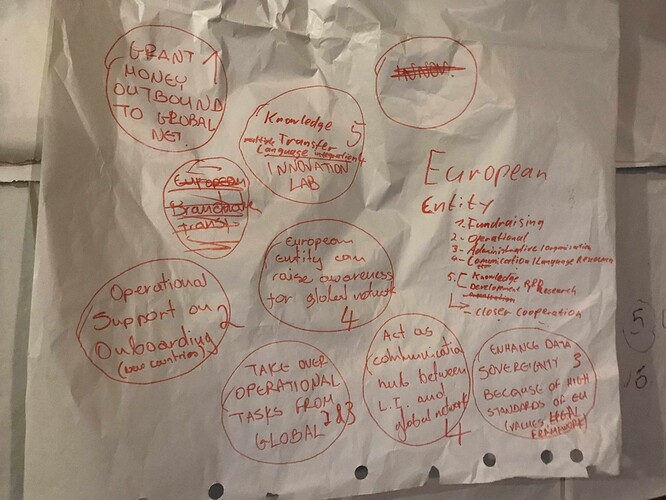 GRANT 1
MONEY
OUTBOUND
TO GLOBAL
NET.
Knowledge 5
multiple Transfer
Language integration 4
INNOVATION
LAB
INNOV.
European
Entity
1. Fundraising
2 - Operational
3 - Administrative/organisation
4 - Comunication/Language Ressource
5. Knowledge
Development R&D Research
closer cooperation
European
Transl
European
Entity can
raise awareness
for global network
4
Operational
Support on 2
Onboarding
(new countries)
TAKE OVER
OPERATIONAL
TASKS FROM
GLOBAL 2&3
Act as
communication
hub between
L.T. and
global network
4
ENHANCE DATA
SOVEREIGNTY 3
BECAUSE OF HIGH
STANDARDS OF EU
(VALUES, LEGAL
5